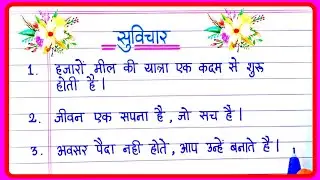 सुविचार
1. हजारों मील की यात्रा एक कदम से शुरू
होती है।
2. जीवन एक सपना है, जो सच है।
3. अवसर पैदा नही होते, आप उन्हे बनाते है।